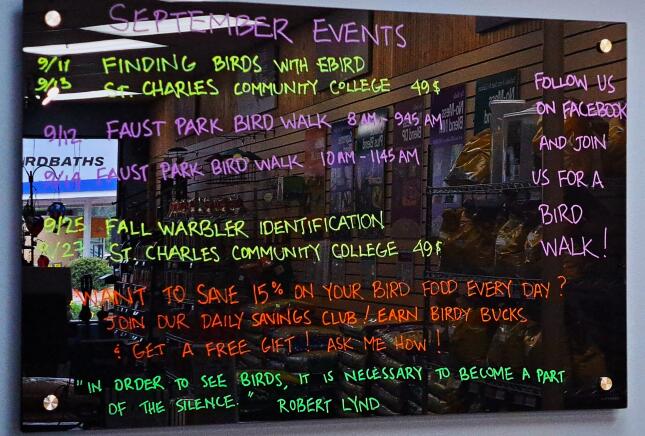 SEPTEMBER EVENTS
9/11 FINDING BIRDS WITH EBIRD
9/13 ST. CHARLES COMMUNITY COLLEGE 49$
9/12 FAUST PARK BIRD WALK 8 AM - 945 AM
9/14 FAUST PARK BIRD WALK 10 AM - 1145 AM
9/25 FALL WARBLER IDENTIFICATION
9/27 ST. CHARLES COMMUNITY COLLEGE 49$
WANT TO SAVE 15% ON YOUR BIRD FOOD EVERY DAY?
JOIN OUR DAILY SAVINGS CLUB! EARN BIRDY BUCKS
& GET A FREE GIFT! ASK ME HOW!
"IN ORDER TO SEE BIRDS, IT IS NECESSARY TO BECOME A PART
OF THE SILENCE." ROBERT LYND
FOLLOW US
ON FACEBOOK
AND JOIN
US FOR A
BIRD
WALK!
RDBATHS